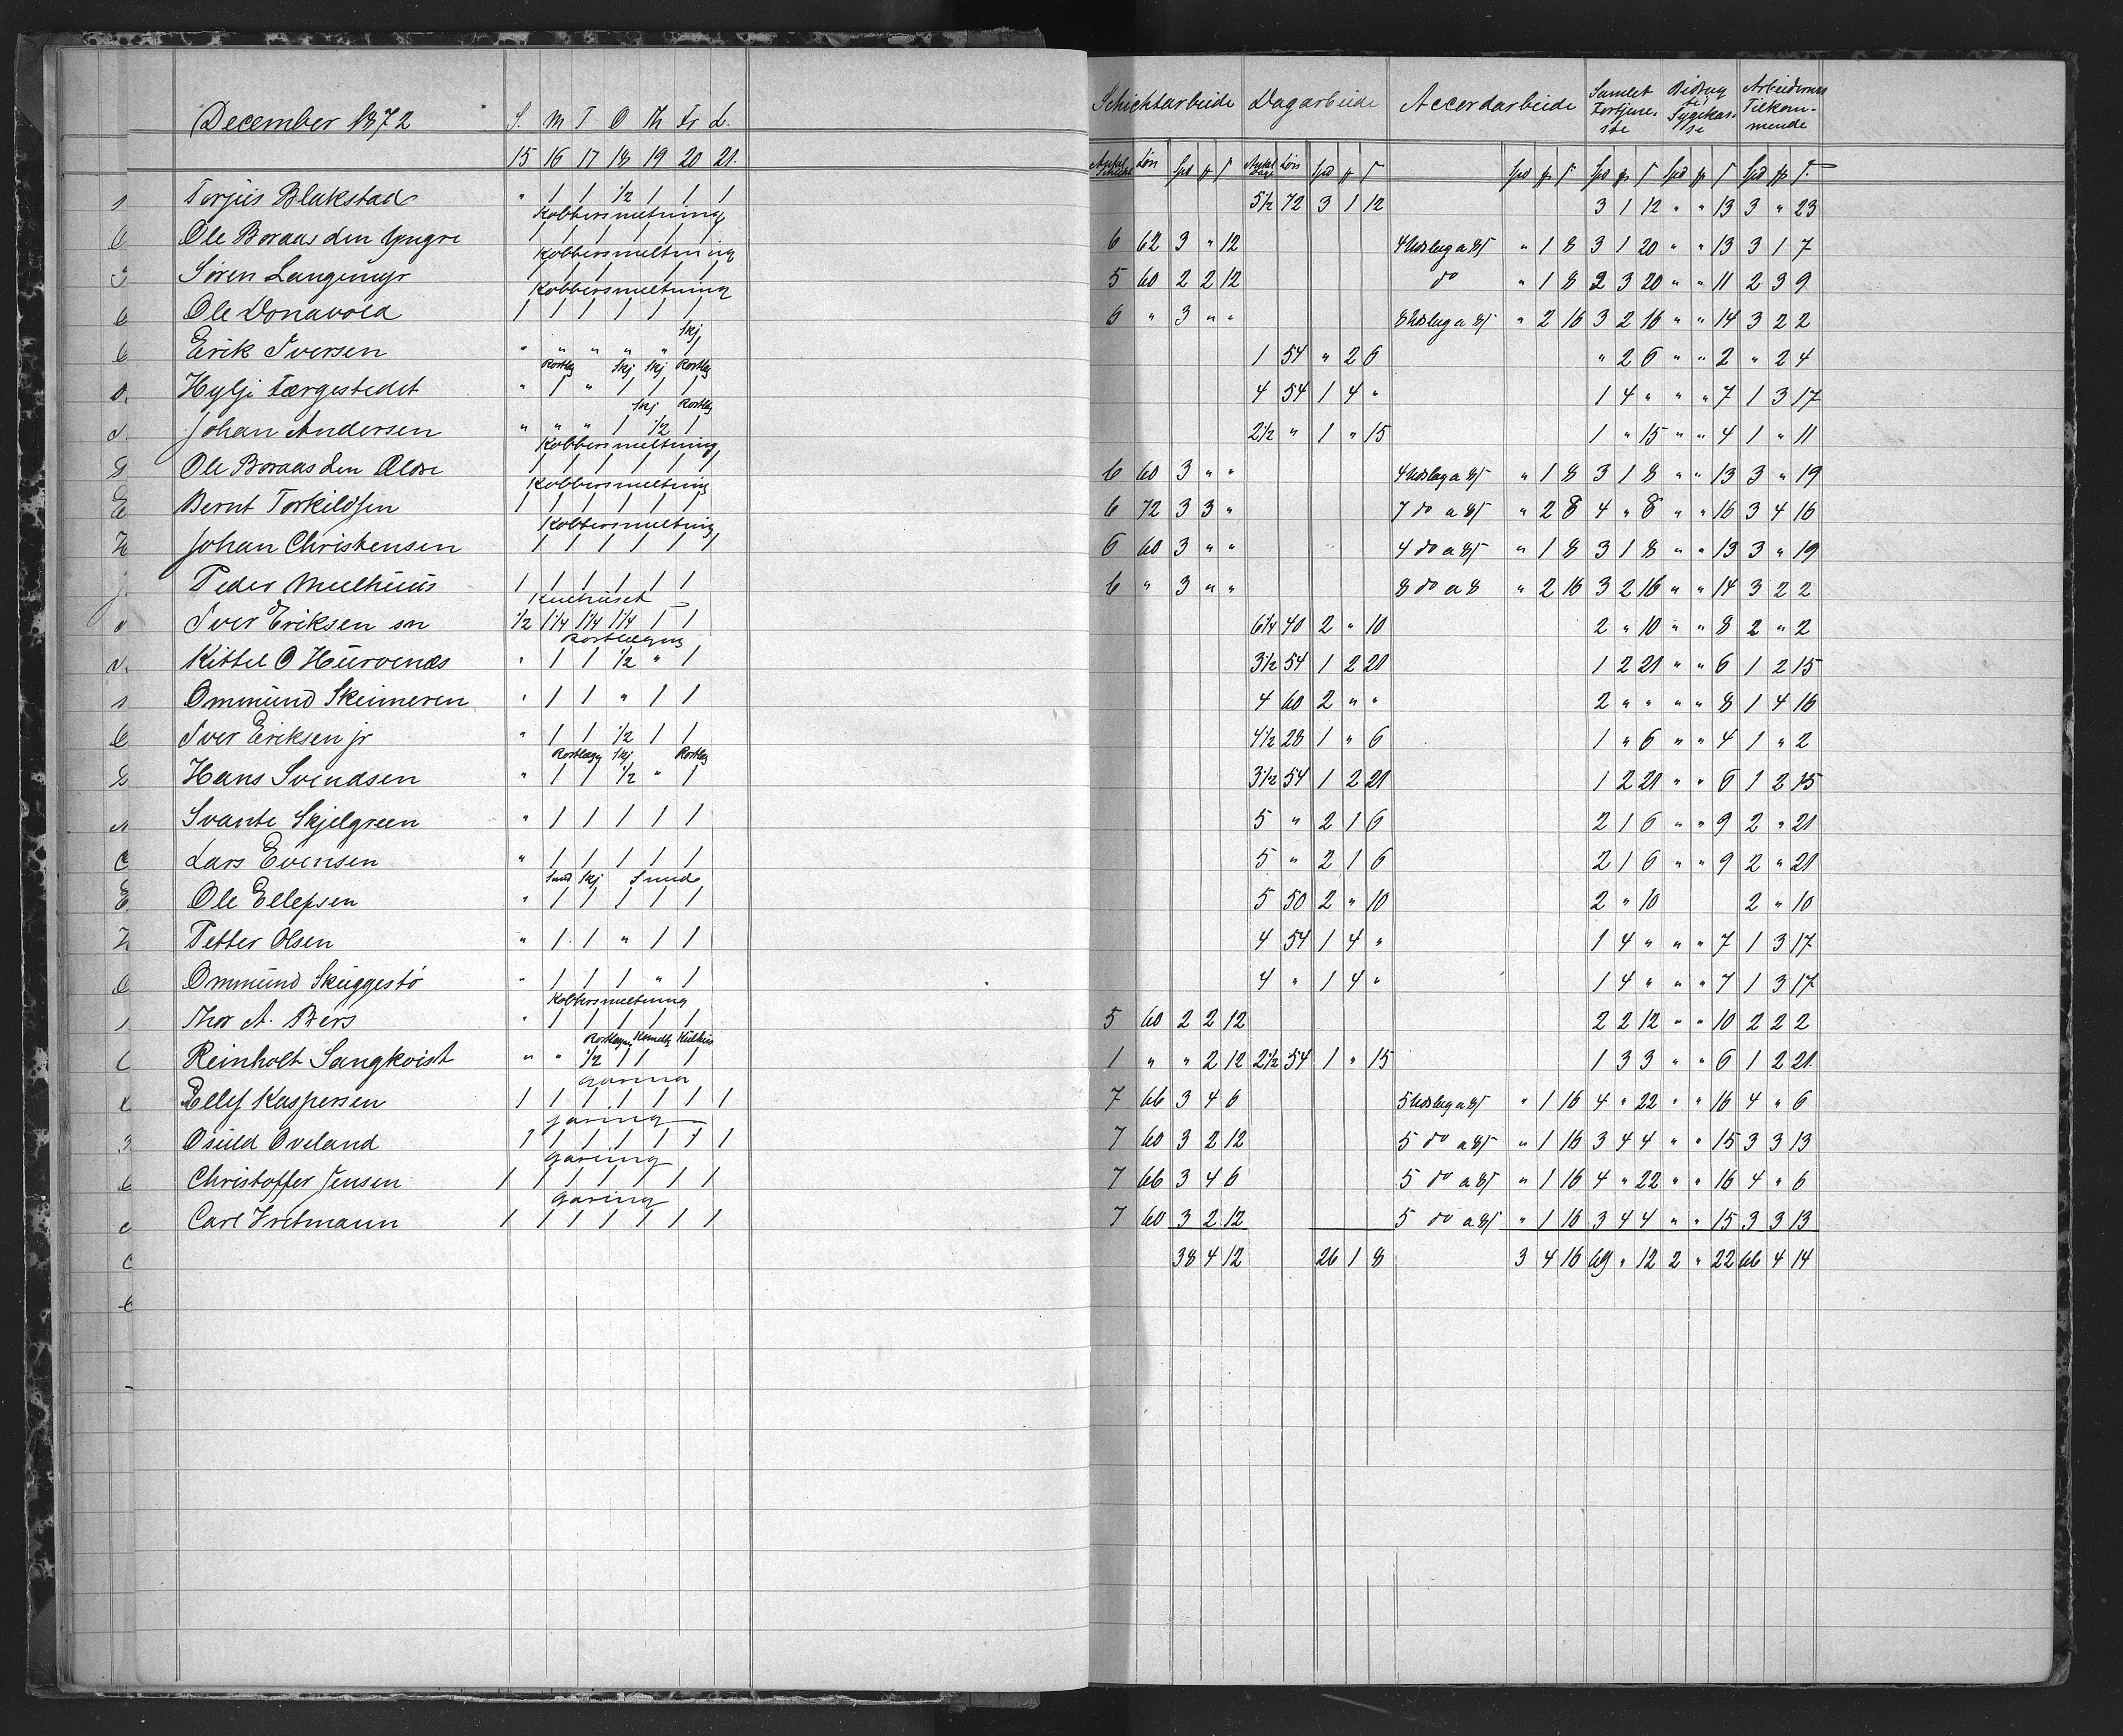 December 1872 S. M T O Th Fr L. Schichtarbeide Dagarbeide Accordarbeide Samlet Fortjeneste Bidrag til Sygekasse Arbeidernes Tilkommende
15 16 17 18 19 20 21. Antal Schicht Løn Spd ß Antal Dage Løn Spd ß Spd ß Spd ß Spd ß Spd ß
Torjus Blakstad " 1 1 ½ 1 1 1 5½ 72 3 1 12 3 1 12 " " 13 3 " 23
Kobbersmeltning
Ole Boraas den Yngre 1 1 1 1 1 1 6 62 3 " 12 4 Udslag a 8ß " 1 8 3 1 20 " " 13 3 1 7
Kobbersmeltning
Søren Langemyr 1 1 1 1 1 1 5 60 2 2 12 do " 1 8 2 3 20 " " 11 2 3 9
Kobbersmeltning
Ole Donavold 1 1 1 1 1 1 6 " 3 " " 8 Udslag a 8ß " 2 16 3 2 16 " " 14 3 2 2
Skj
Erik Iversen " " " " " 1 1 54 " 2 6 " 2 6 " " 2 " 2 4
Rostlæg Skj Skj Rostlæg
Hylji Færgestedet " 1 " 1 1 1 4 54 1 4 " 1 4 " " " 7 1 3 17
Skj Rostlæg
Johan Andersen " " " 1 ½ 1 2½ " 1 " 15 1 " 15 " " 4 1 " 11
Kobbersmeltning
Ole Boraas den Ældre 1 1 1 1 1 1 6 60 3 " " 4 Udslag a 8ß " 1 8 3 1 8 " " 13 3 " 19
Kobbersmeltning
Bernt Torkildsen 1 1 1 1 1 1 6 72 3 3 " 7 do a 8ß " 2 8 4 " 8 " " 16 3 4 16
Kobbersmeltning
Johan Christensen 1 1 1 1 1 1 6 60 3 " " 4 do a 8ß " 1 8 3 1 8 " " 13 3 " 19
Peder Meelhuus 1 1 1 1 1 1 6 " 3 " " 8 do a 8 " 2 16 3 2 16 " " 14 3 2 2
Kulhuset
Iver Eriksen sn ½ 1¼ 1¼ 1¼ 1 1 6¼ 40 2 " 10 2 " 10 " " 8 2 " 2
Rostlægning
Kittel O Hurvenes " 1 1 ½ " 1 3½ 54 1 2 21 1 2 21 " " 6 1 2 15
Ommund Skeimeren " 1 1 " 1 1 4 60 2 " " 2 " " " " 8 1 4 16
Iver Eriksen jr " 1 1 ½ 1 1 4½ 28 1 " 6 1 " 6 " " 4 1 " 2
Rostlægn Skj Rostlæg
Hans Svendsen " 1 1 ½ " 1 3½ 54 1 2 21 1 2 21 " " 6 1 2 15
Svante Skjelgreen " 1 1 1 1 1 5 " 2 1 6 2 1 6 " " 9 2 " 21
Lars Evensen " 1 1 1 1 1 5 " 2 1 6 2 1 6 " " 9 2 " 21
Smed Skj Smed
Ole Ellefsen " 1 1 1 1 1 5 50 2 " 10 2 " 10 2 " 10
Petter Olsen " 1 1 " 1 1 4 54 1 4 " 1 4 " " " 7 1 3 17
Ommund Skuggestø " 1 1 1 " 1 4 " 1 4 " 1 4 " " " 7 1 3 17
Kobbersmeltning
Thor A. Bers " 1 1 1 1 1 5 60 2 2 12 2 2 12 " " 10 2 2 2
Rostlægn Ksmeltg Kulhus
Reinholt Sangkvist " " ½ 1 1 1 1 " " 2 12 2½ 54 1 " 15 1 3 3 " " 6 1 2 21.
Garing
Ellef Kaspersen 1 1 1 1 1 1 1 7 66 3 4 6 5 Udslag a 8ß " 1 16 4 " 22 " " 16 4 " 6
Garing
Osuld Oveland 1 1 1 1 1 1 1 7 60 3 2 12 5 do a 8ß " 1 16 3 4 4 " " 15 3 3 13
Garing
Christoffer Jensen 1 1 1 1 1 1 1 7 66 3 4 6 5 do a 8ß " 1 16 4 " 22 " " 16 4 " 6
Garing
Carl Vretmann 1 1 1 1 1 1 1 7 60 3 2 12 5 do a 8ß " 1 16 3 4 4 " " 15 3 3 13
38 4 12 26 1 8 3 4 16 69 " 12 2 " 22 66 4 14